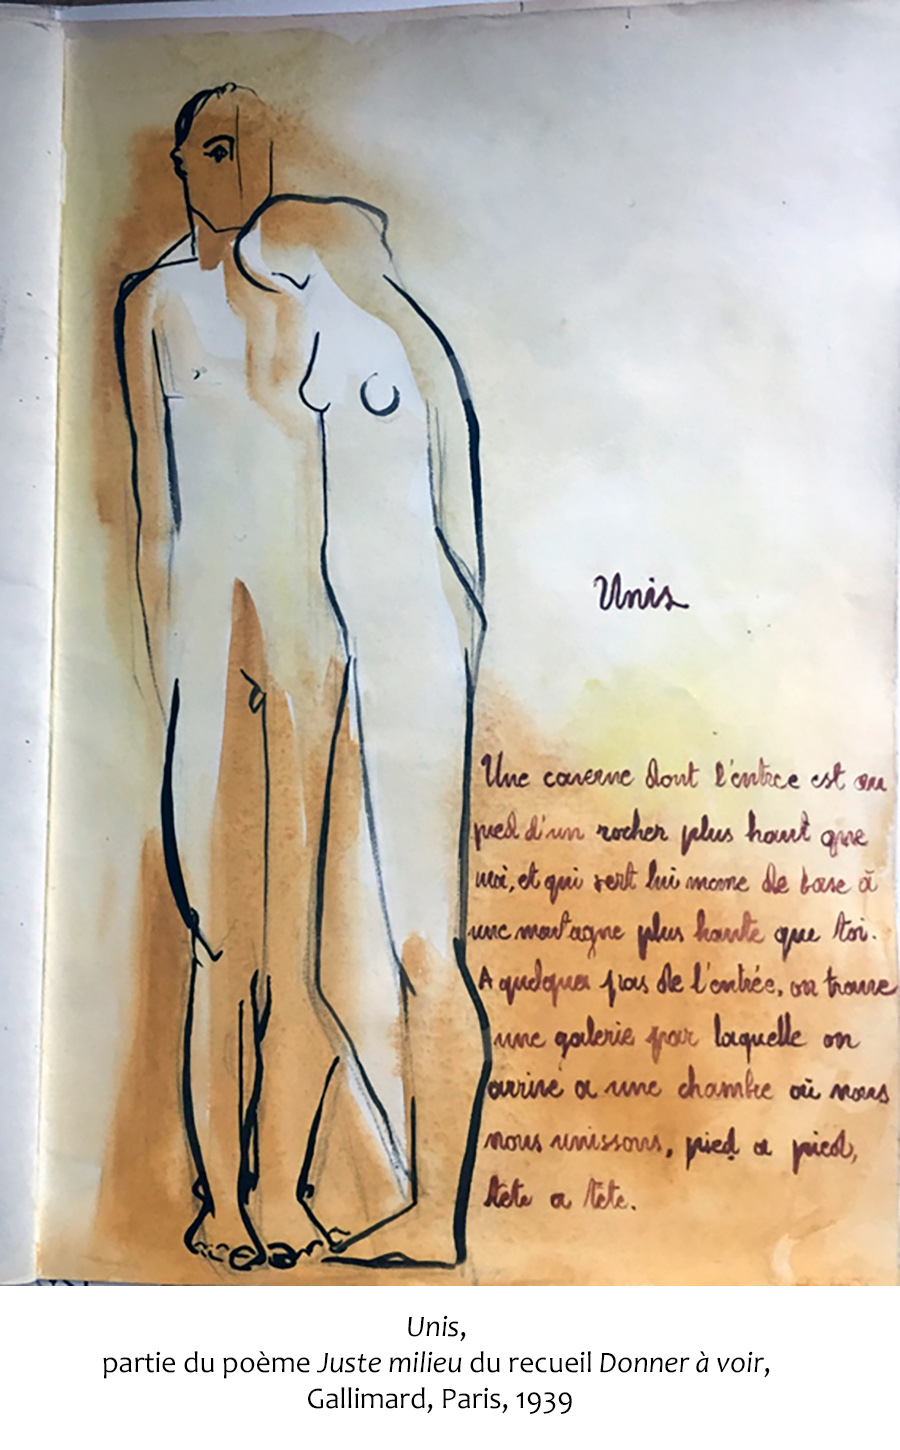 Unis
Une caverne dont l'entrée est au
pied d'un rocher plus haut que
moi, et qui sert lui mome de base à
une montagne plus haute que toi.
A quelques pas de l'entrée, on trouve
une galerie par laquelle on
arrive a une chambre où nous
nous unissons, pied a pied,
tête a tête.
Unis,
partie du poème Juste milieu du recueil Donner à voir,
Gallimard, Paris, 1939